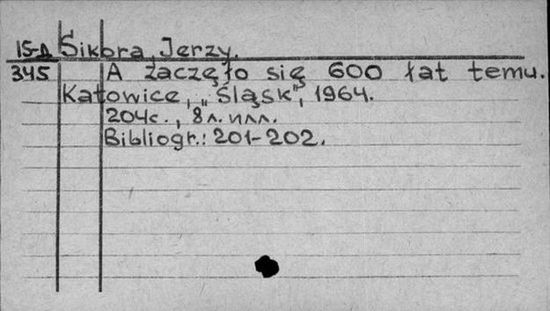 15-Д Sikora, Jerzy.
345 A zaczęło się 600 łat temu.
Katowice, „Śląsk", 1964.
204с., 8л. илл.
Bibliogr.: 201-202.